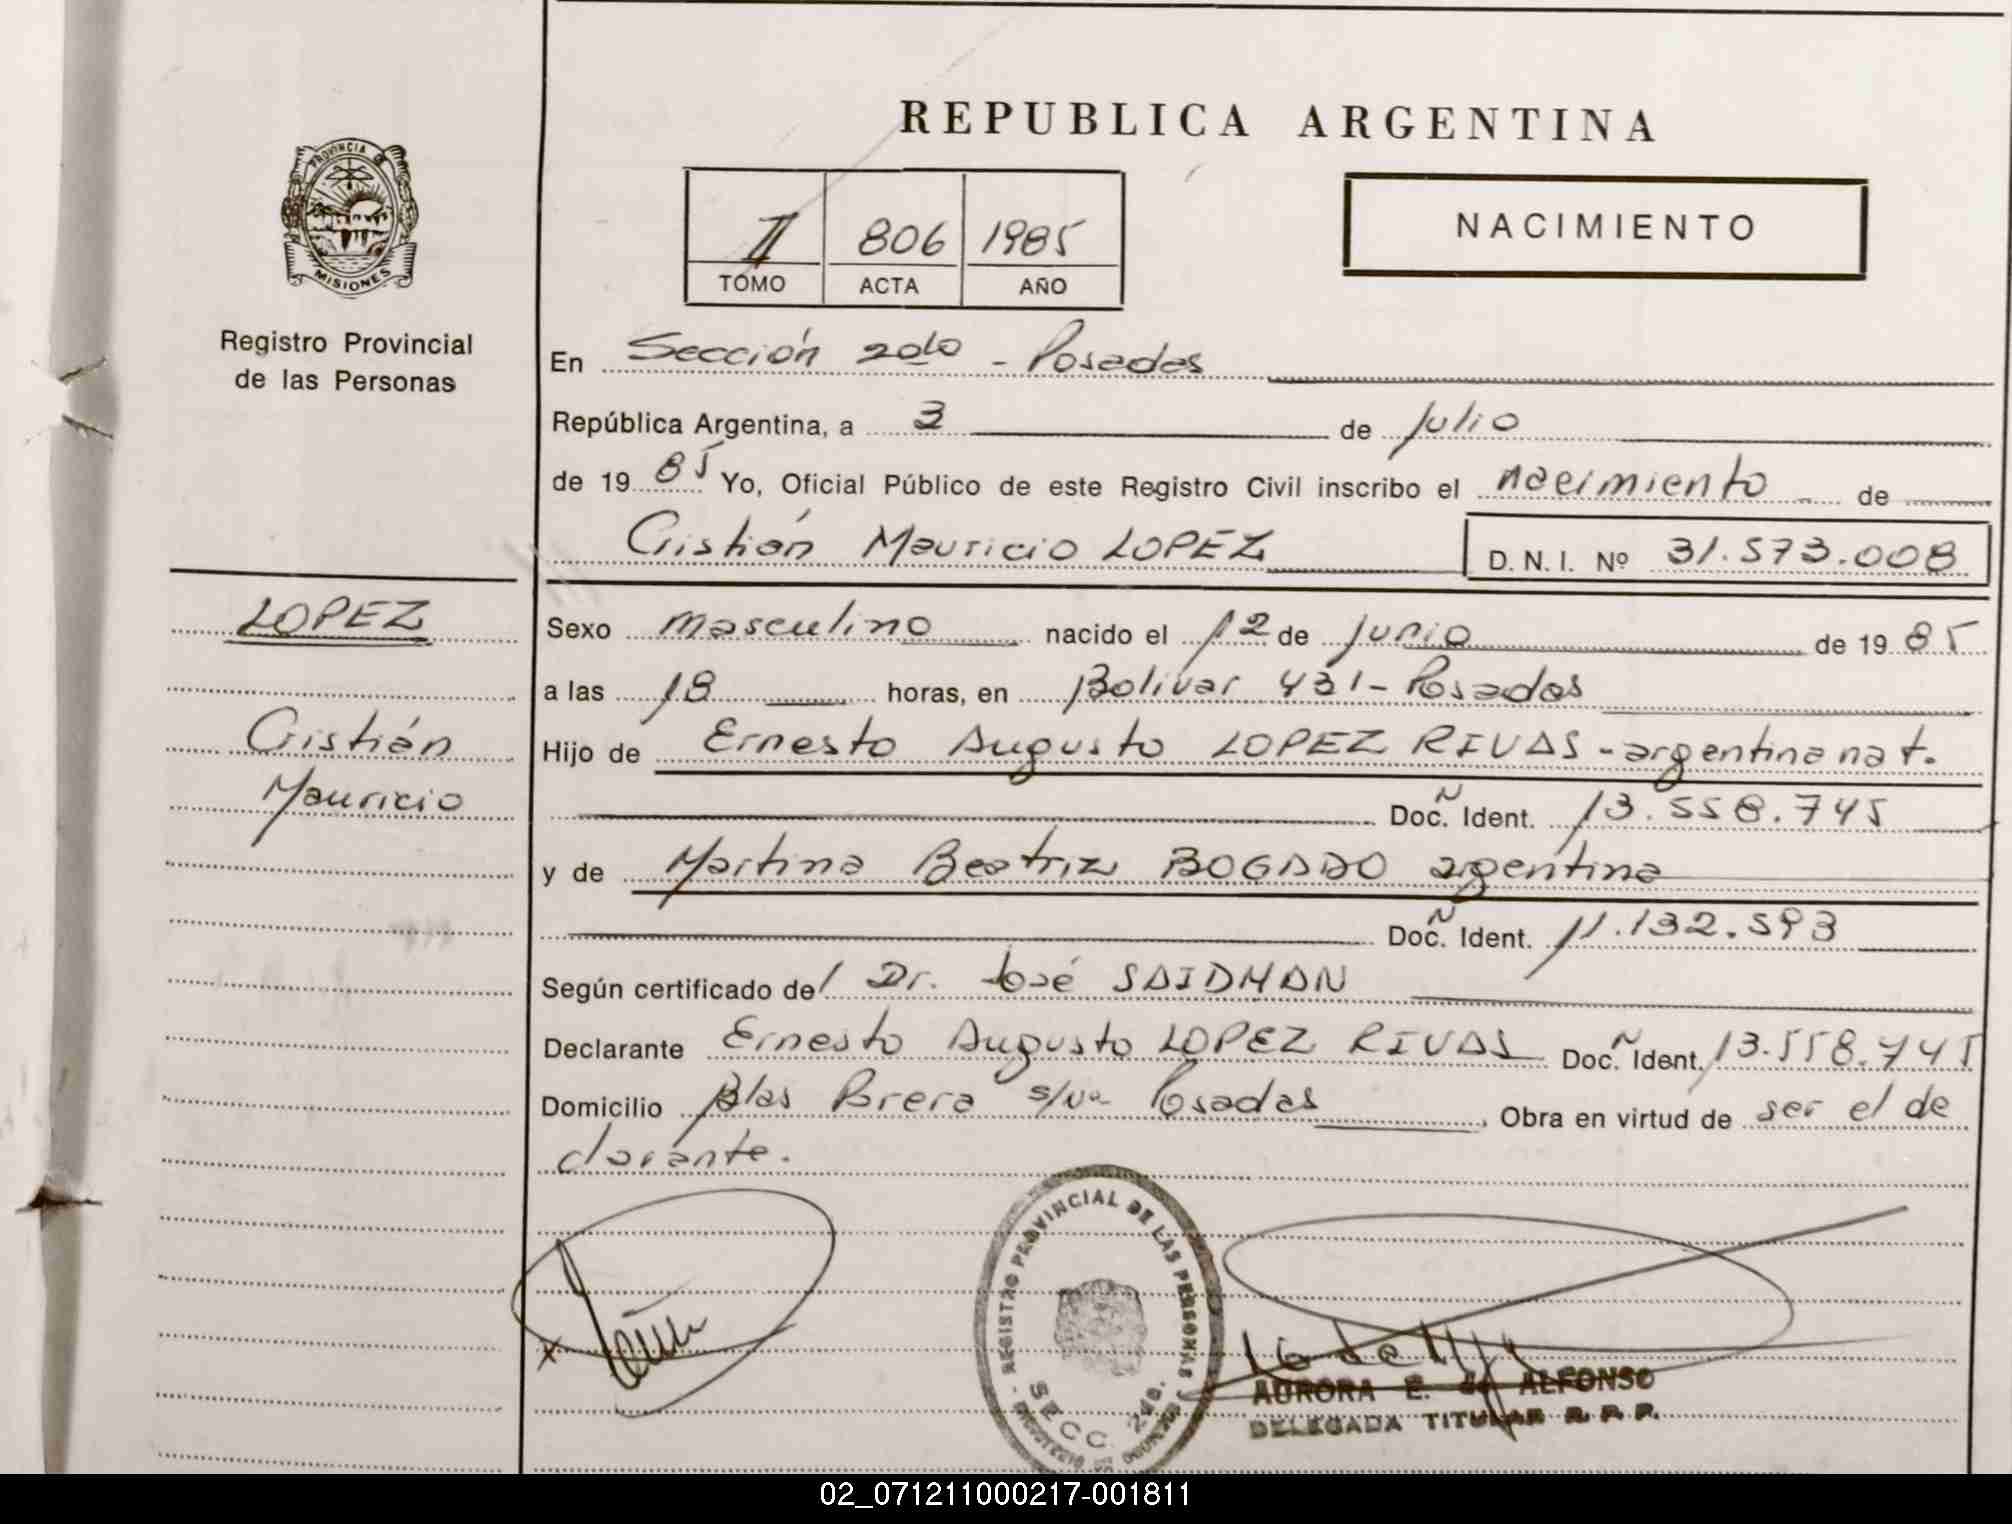 REPUBLICA ARGENTINA
PROVINCIA DE
MISIONES
II 806 1985
TOMO ACTA AÑO
NACIMIENTO
Registro Provincial
de las Personas
En Sección 2da - Posadas
República Argentina, a 3 de Julio
de 1985 Yo, Oficial Público de este Registro Civil inscribo el nacimiento de
Cristián Mauricio LOPEZ D. N. I. Nº 31.573.008
LOPEZ
Cristián
Mauricio
Sexo masculino nacido el 12 de junio de 1985
a las 18 horas, en Bolívar 431 - Posadas
Hijo de Ernesto Augusto LOPEZ RIVAS - argentina nat.
Doc. Ident. 13.558.745
y de Martina Beatriz BOGADO argentina
Doc. Ident. 11.132.593
Según certificado de Dr. José SAIDMAN
Declarante Ernesto Augusto LOPEZ RIVAS Doc. Ident. 13.558.745
Domicilio Blas Parera s/Nº Posadas, Obra en virtud de ser el de
clarante.
REGISTRO PROVINCIAL DE LAS PERSONAS
SECC. 2da.
AURORA E. de ALFONSO
DELEGADA TITULAR R. P. P.
02_071211000217-001811